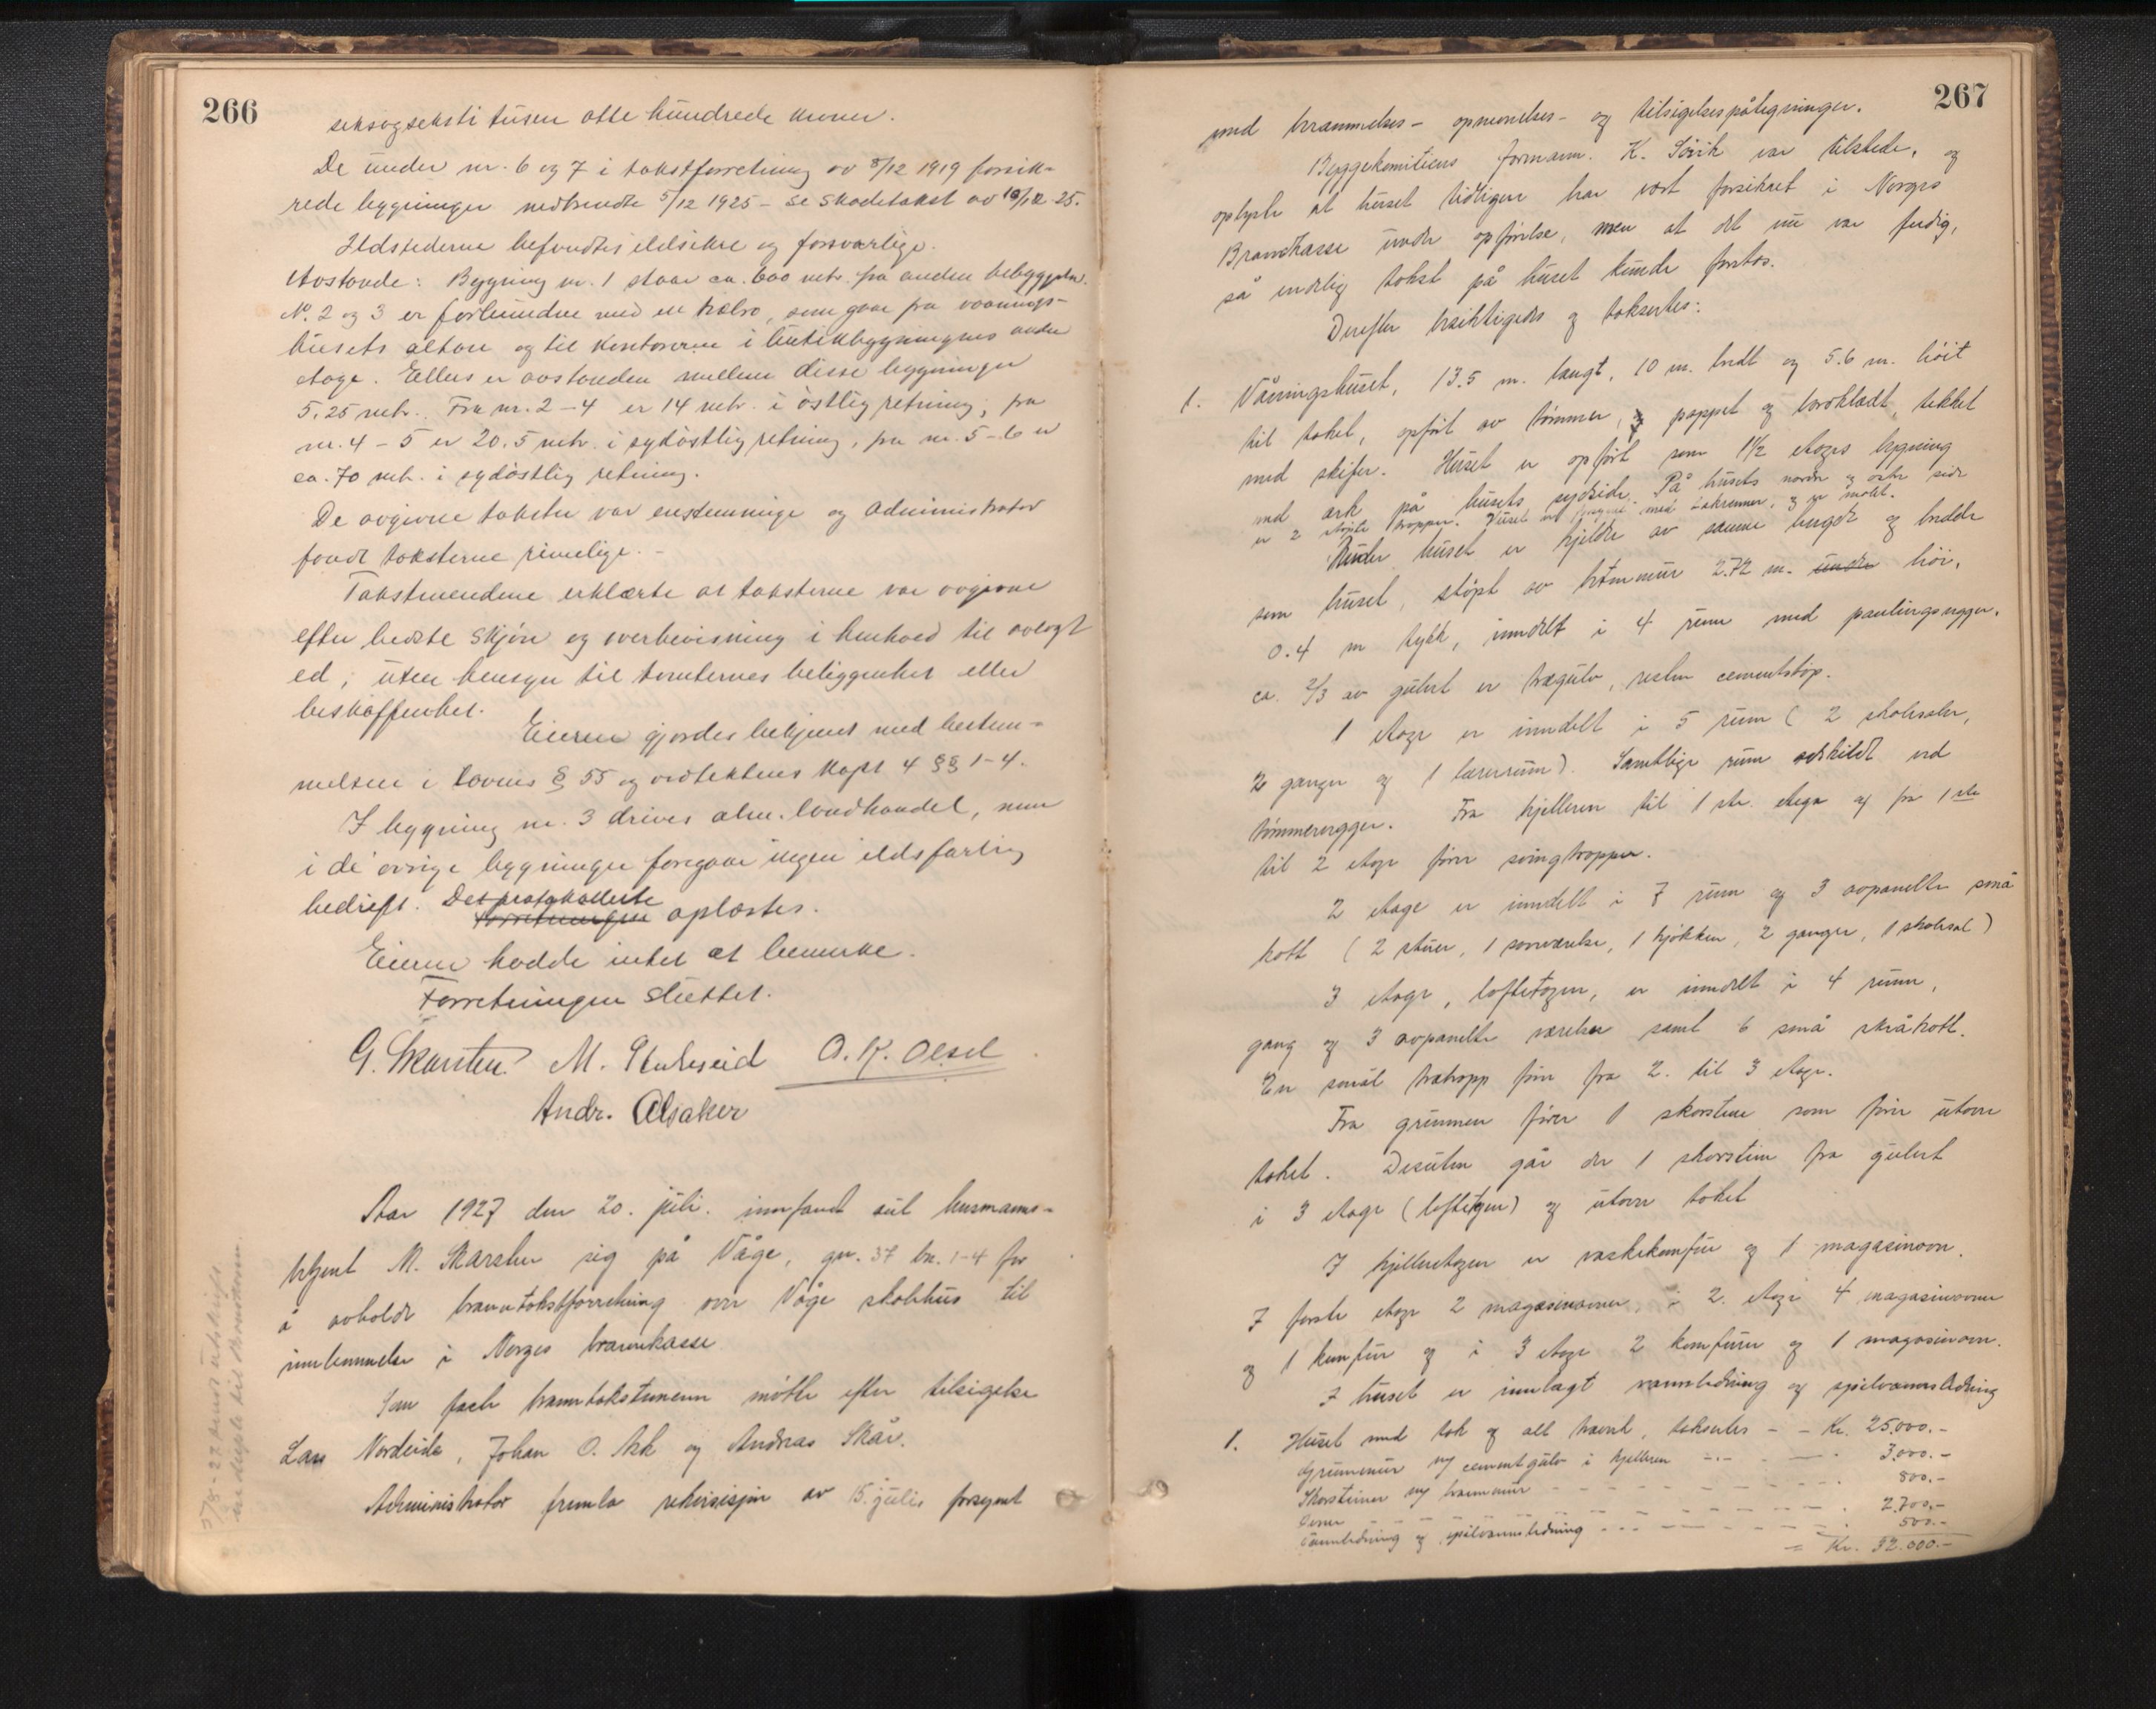 266
seksogseksti tusen otte hundrede kroner.
De under nr. 6 og 7 i takstforretning av 8/12 1919 forsik-
rede bygninger nedbrendte 5/12 1925 - se skadetakst av 18/12 25.
Ildstederne befandtes ildsikre og forsvarlige.
Avstande: Bygning nr. 1 staar ca. 600 mtr. fra anden bebyggelse.
No. 2 og 3 er forbundne med en trælro, som gaar fra vaanings-
husets altan og til kontorerne i butikbygningens anden
etage. Ellers er avstanden mellem disse bygninger
5,25 mtr. Fra nr. 2-4 er 14 mtr. i østlig retning, fra
nr. 4-5 er 20.5 mtr. i sydøstlig retning, fra nr. 5-6 er
ca. 70 mtr. i sydøstlig retning.
De avgivne takster var enstemmige og administrator
fandt taksterne rimelige. -
Takstmendene erklærte at taksterne var avgivne
efter bedste skjøn og overbevisning i henhold til avlagt
ed, uten hensyn til tomternes beliggenhet eller
beskaffenhet.
Eieren gjordes bekjent med bestem-
melsen i lovens § 55 og vedtektens kapt 4 §§ 1-4.
I bygning nr. 3 drives alm. landhandel, men
i de øvrige bygninger foregaar ingen ildsfarlig
bedrift. Det protokollerte
Forretningen oplæstes.
Eieren hadde intet at bemerke.
Forretningen sluttet.
G. Skarsten M. Stukseid O. K. Olsel
Andr. Alsaker
Aar 1927 den 20. juli. innfandt sul lensmanns-
betjent M. Skarsten sig på Våge, gn. 37 bn. 1-4 for
å avholde branntakstforretning over Våge skolehus til
innlemmelse i Norges brannkasse
Som faste branntakstmenn møtte efter tilsigelse
Lars Nordeide, Johan O. Ask og Andreas Skår.
Administrator fremla rekvisisjon av 15. juli, forsynt
5/8-27 sendt utskrift
267
med berammelses- opnevnelses- og tilsigelsespåtegninger.
Byggekomiteens formann. K. Sörik var tilstede, og
oplyste at huset tidligere har vært forsikret i Norges
Brandkasse under opførelse, men at det nu var ferdig,
så endelig takst på huset kunde foretas.
Derefter besiktigedes og taksertes:
1. Våningshuset, 13.5 m. langt, 10 m. bredt og 5.6 m. høit
til taket, opført av tømmer, og pappet og bordklædt, tekket
med skifer. Huset er opført som 1 1/2 etages bygning
med ark på husets sydside. På husets nordre og østre side
er 2 støpte trapper. Huset er forsynt med takrenner, og er malt.
Under huset er kjelder av samme lengde og bredde
som huset, støpt av betonmur 2.72 m. under høi,
0.4 m tykk, inndelt i 4 rum med panelingsvegger.
ca. 2/3 av gulvet er trægulv, resten cementstøp.
1 etage er inndelt i 5 rum ( 2 skolesaler,
2 ganger og 1 lærerrum). Samtlige rum adskildt ved
tømmervegger. Fra kjelleren til 1 ste. etage og fra 1 ste
til 2 etage fører svingtrapper.
2 etage er inndelt i 7 rum og 3 avpanelte små
kott ( 2 stuer, 1 soverværelse, 1 kjøkken, 2 ganger, 1 skolesal)
3 etage, loftetagen, er inndelt i 4 rum,
gang og 3 avpanelte værelser samt 6 små skråkott.
En smal trætrapp fører fra 2. til 3 etage.
Fra grunnen fører 1 skorsten som fører utover
taket. Desuten går der 1 skorstein fra gulvet
i 3 etage (loftetagen) og utover taket
I kjelleretagen er vaskekomfur og 1 magasinovn.
I første etage 2 magasinovner, i 2. etage 4 magasinovner
og 1 komfur og i 3 etage 2 komfurer og 1 magasinovn.
I huset er innlagt vannledning og spillvannsledning
1. Huset med tak og alt træverk, taksertes - - Kr. 25.000.-
Grunnmur og cementgulv i kjelleren - - - 3.000.-
Skorsteiner og brannmur - - - 800.-
Ovner - - - 2.700.-
Vannledning og spillvannsledning - - - 500.-
= Kr. 32.000.-